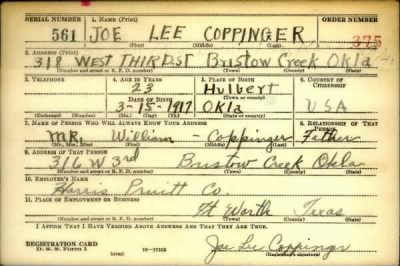 SERIAL NUMBER 1. NAME (Print) ORDER NUMBER
561 JOE LEE COPPINGER 375
(First) (Middle) (Last)
2. ADDRESS (Print)
318 WEST THIRD ST Bristow Creek Okla
(Number and street or R. F. D. number) (Town) (County) (State)
3. TELEPHONE 4. AGE IN YEARS 5. PLACE OF BIRTH 6. COUNTRY OF CITIZENSHIP
23 Hulbert
(Town or county)
DATE OF BIRTH
3-15-1917 Okla USA
(Exchange) (No.) (Mo.) (Day) (Yr.) (State or country)
7. NAME OF PERSON WHO WILL ALWAYS KNOW YOUR ADDRESS 8. RELATIONSHIP OF THAT PERSON
MR. William - Coppinger Father
(Mr., Mrs., Miss) (First) (Middle) (Last)
9. ADDRESS OF THAT PERSON
316 W 3rd Bristow Creek Okla
(Number and street or R. F. D. number) (Town) (County) (State)
10. EMPLOYER'S NAME
Harris Pruitt Co.
11. PLACE OF EMPLOYMENT OR BUSINESS
Ft Worth Texas
(Number and street or R. F. D. number) (Town) (County) (State)
I AFFIRM THAT I HAVE VERIFIED ABOVE ANSWERS AND THAT THEY ARE TRUE.
REGISTRATION CARD
D. S. S. Form 1 (over) 16-17105 Joe Lee Coppinger
(Registrant's signature)